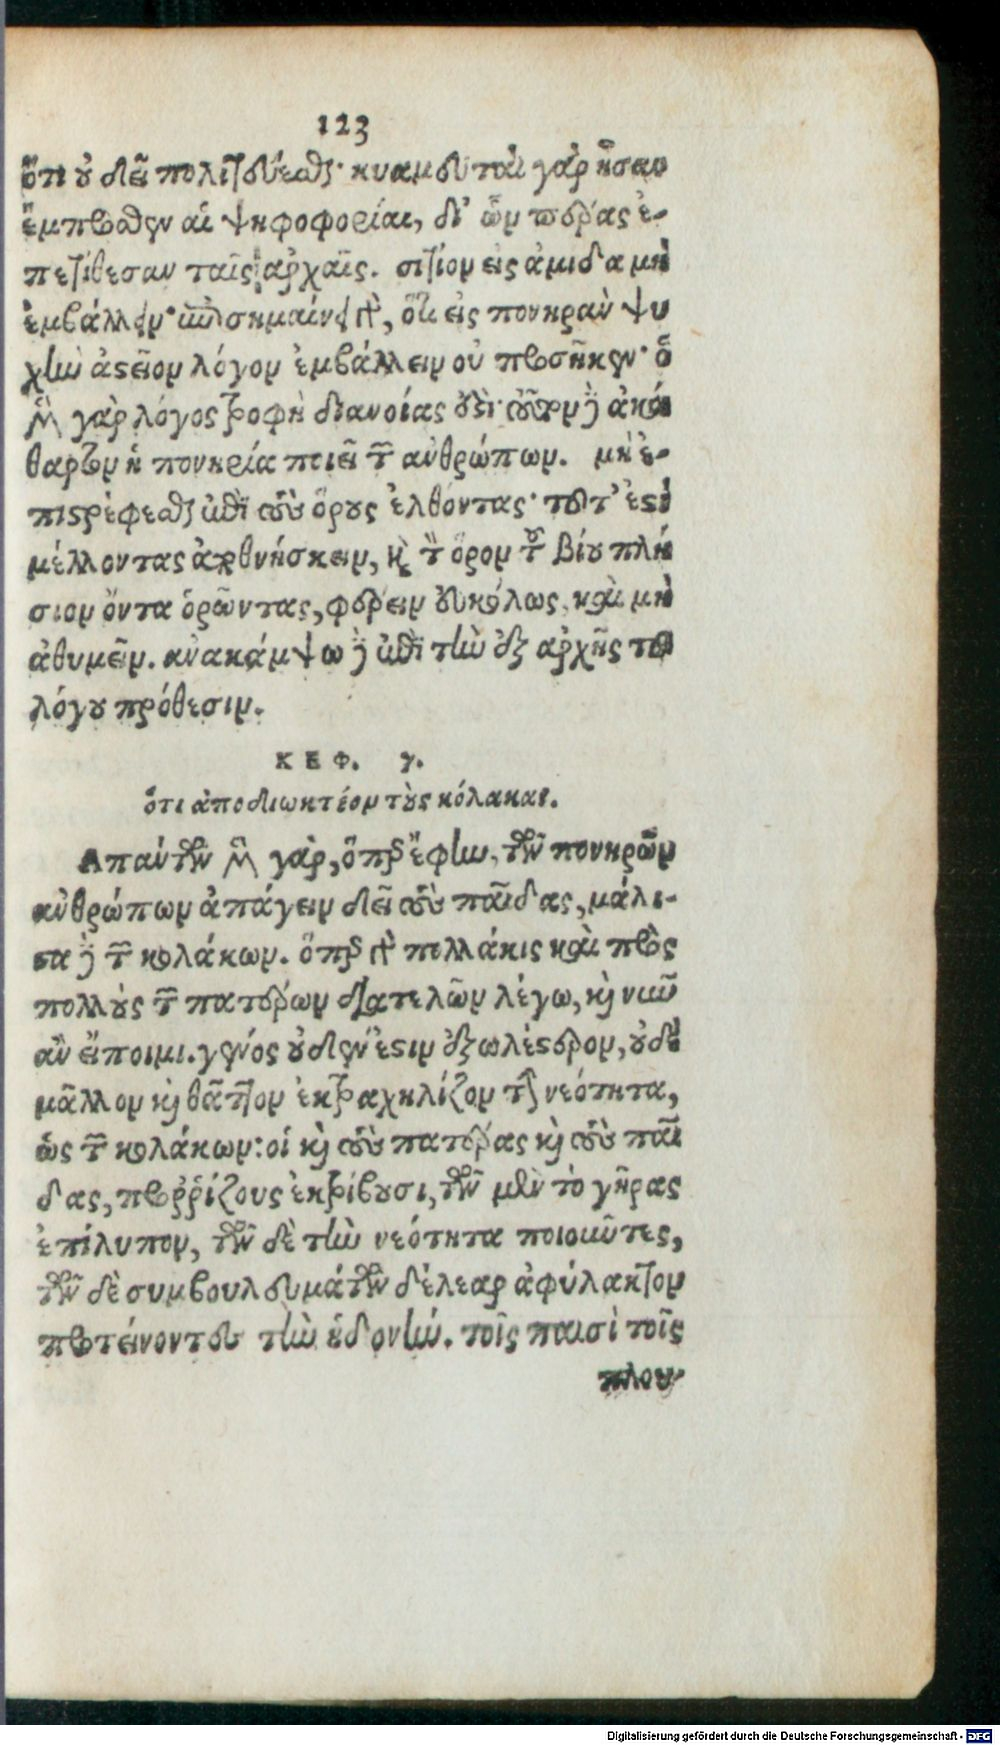 123
ὅτι οὐ δεῖ πολιτεύεσθαι· κυαμευταὶ γὰρ ἦσαν
ἔμπροσθεν αἱ ψηφοφορίαι, δι' ὧν πέρας ἐ-
πετίθεσαν ταῖς ἀρχαῖς. σιτίον εἰς ἀμίδα μὴ
ἐμβάλλειν· ἐπισημαίνει γὰρ, ὅτι εἰς πονηρὰν ψυ
χὴν ἀστεῖον λόγον ἐμβάλλειν οὐ προσῆκεν· ὁ
μὲν γὰρ λόγος τροφὴ διανοίας ἐστί· τοῦτον δὲ ἀκά
θαρτον ἡ πονηρία ποιεῖ τῶν ἀνθρώπων. μὴ ἐ-
πιστρέφεσθαι ἐπὶ τοὺς ὅρους ἐλθόντας· τουτ' ἐστὶ
μέλλοντας ἀποθνήσκειν, καὶ τὸν ὅρον τοῦ βίου πλη
σίον ὄντα ὁρῶντας, φέρειν εὐκόλως, καὶ μὴ
ἀθυμεῖν. ἀνακάμψω δὲ ἐπὶ τὴν ἐξ ἀρχῆς τοῦ
λόγου πρόθεσιν.
ΚΕΦ. γ.
ὅτι ἀποδιωκτέον τοὺς κόλακας.
Απάντων μὲν γὰρ, ὅπερ ἔφην, τῶν πονηρῶν
ἀνθρώπων ἀπάγειν δεῖ τοὺς παῖδας, μάλι-
στα δὲ τῶν κολάκων. ὅπερ γὰρ πολλάκις καὶ πρὸς
πολλοὺς τῶν πατέρων διατελῶν λέγω, καὶ νῦν
ἂν εἴποιμι. γένος οὐδέν ἐστιν ἐξωλέστερον, οὐδὲ
μᾶλλον καὶ θᾶττον ἐκτραχηλίζον τὴν νεότητα,
ὡς τῶν κολάκων: οἱ καὶ τοὺς πατέρας καὶ τοὺς παῖ
δας, προῤῥίζους ἐκτρίβουσι, τῶν μὲν τὸ γῆρας
ἐπίλυπον, τῶν δὲ τὴν νεότητα ποιοῦντες,
τῶν δὲ συμβουλευμάτων δέλεαρ ἀφύλακτον
προτείνοντες τὴν ἡδονήν. τοῖς παισὶ τοῖς
πλου-
Digitalisierung gefördert durch die Deutsche Forschungsgemeinschaft - DFG